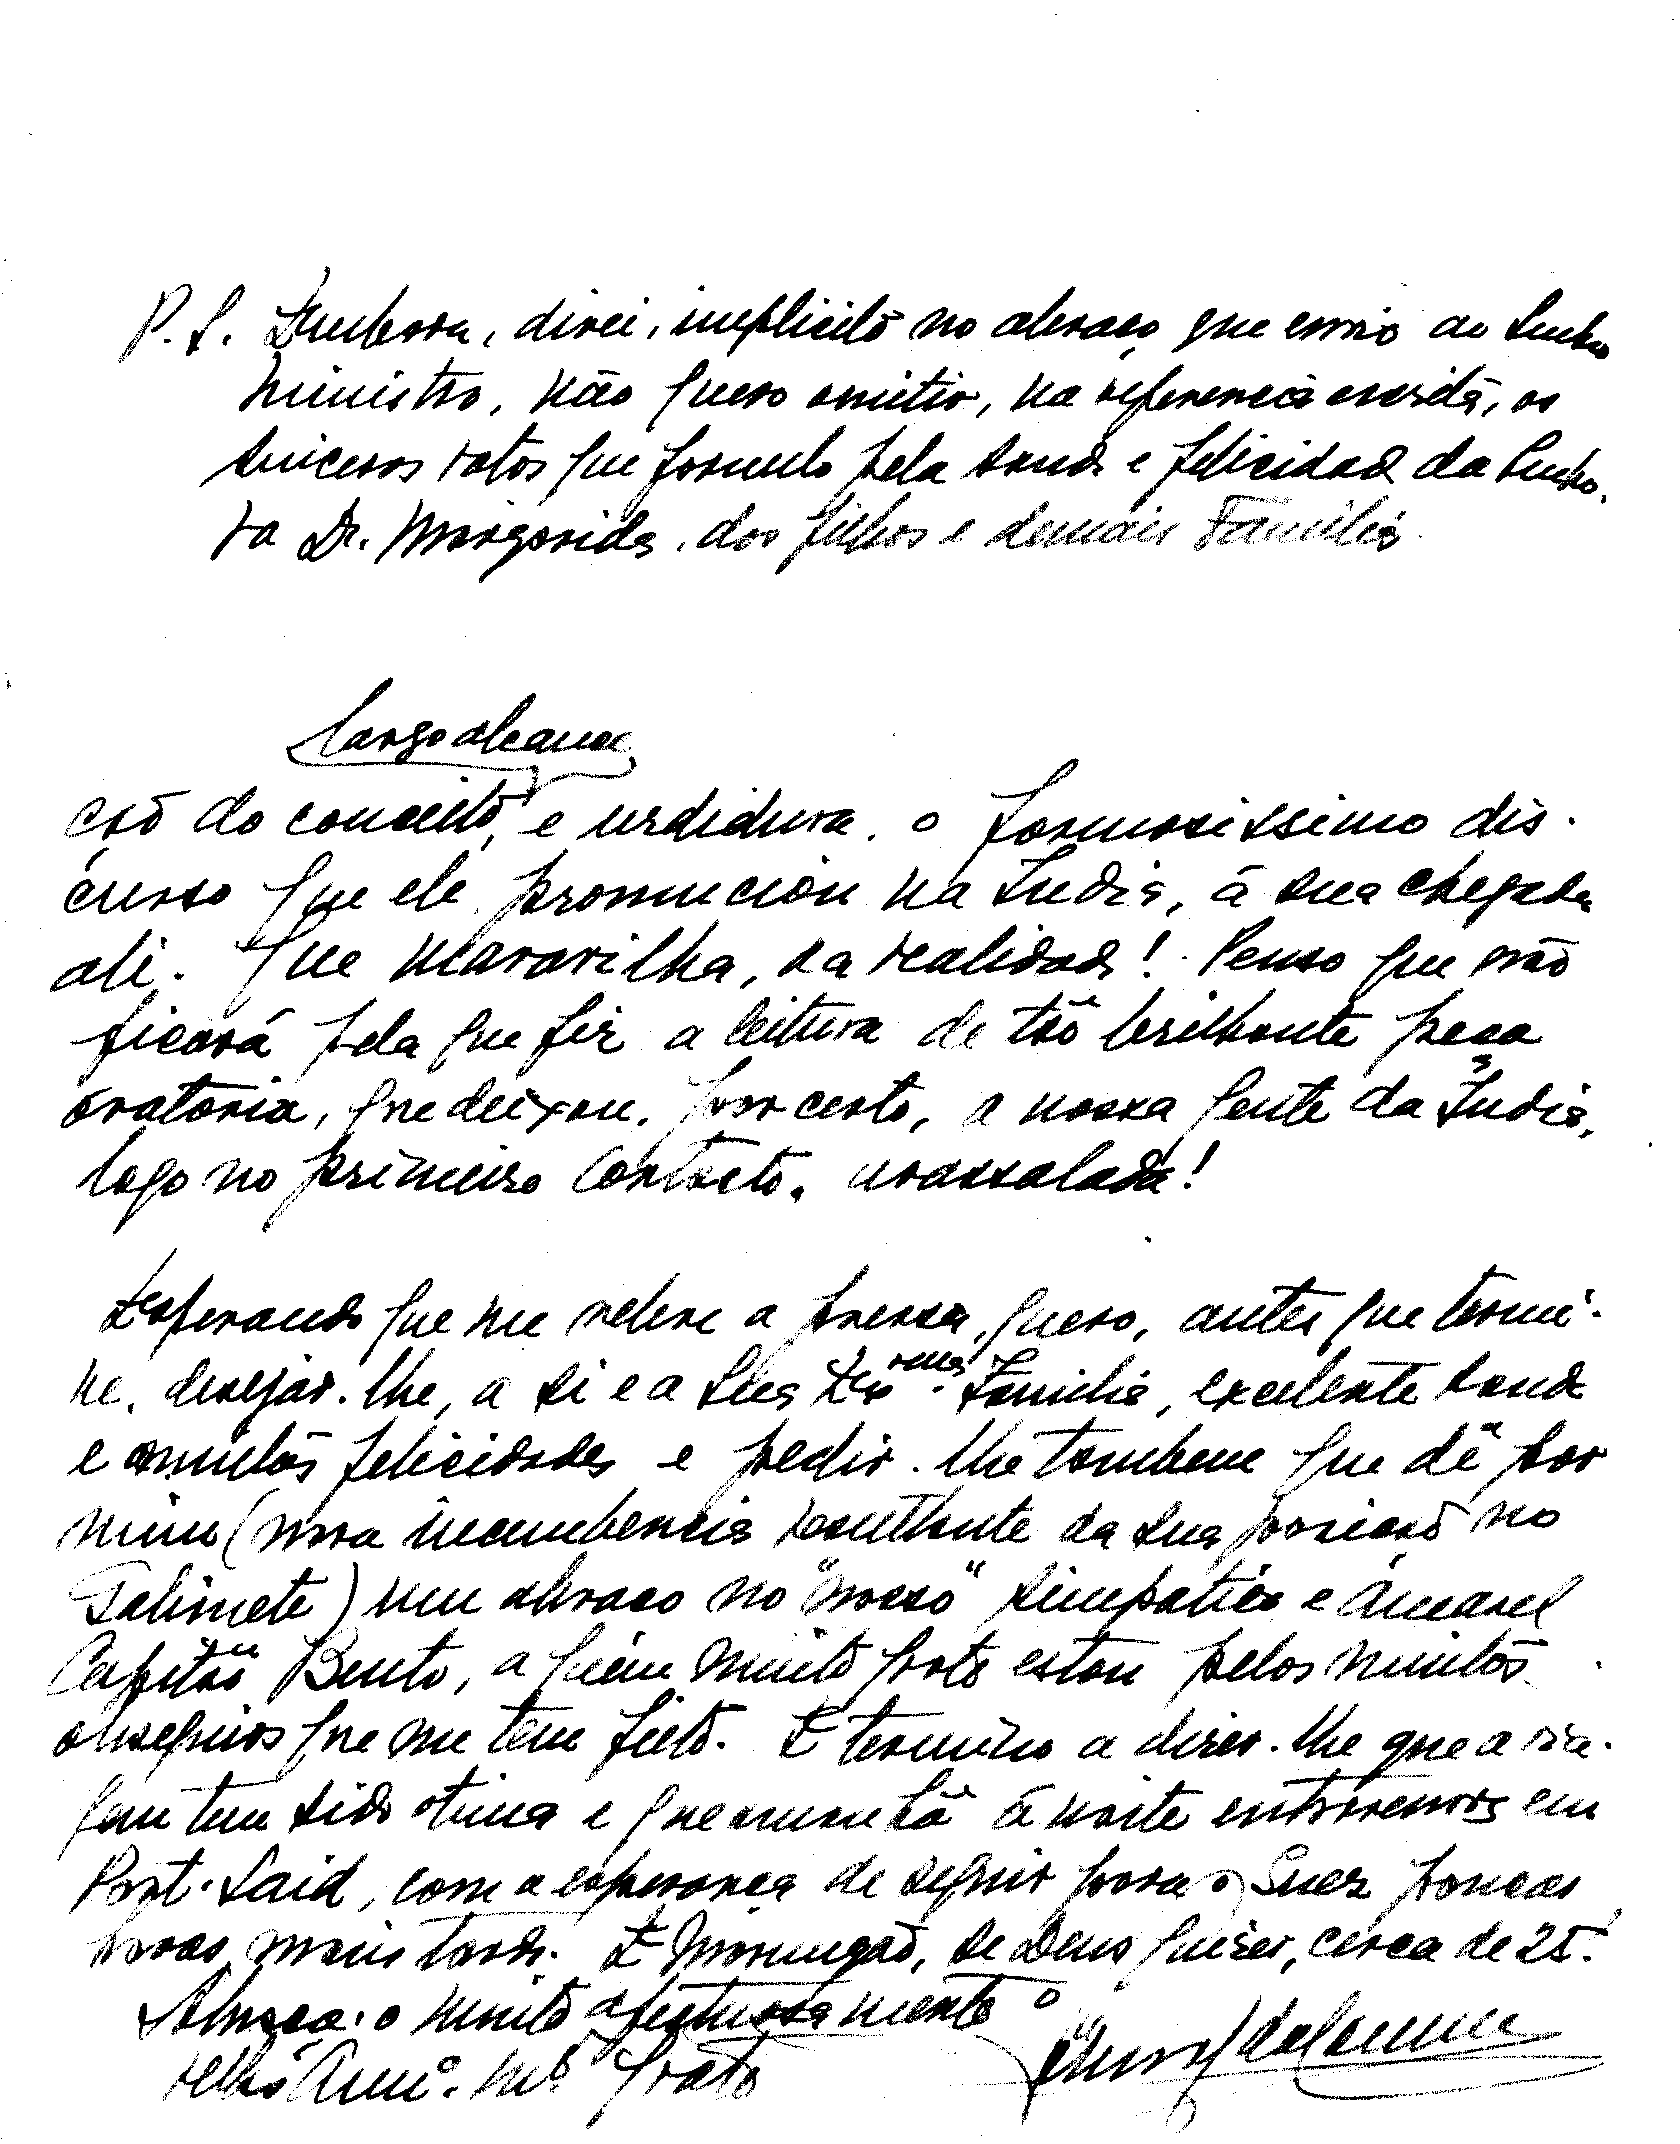 P. S. Embora, direi, implicito no abraço que envio ao Senhor
Ministro, não quero omitir, na referencia escrita, os
sinceros votos que formulo pela saude e felicidade da Senho-
ra D. Margarida, dos filhos e demais Familia.
largo alcance
ção do conceito, e urdidura, o formosissimo dis-
curso que ele pronunciou na India, á sua chegada
ali. Que maravilha, na realidade! Penso que não
ficará pela que fiz a leitura de tão brilhante peça
oratoria, que deixou, por certo, a nossa gente da India,
logo no primeiro contacto, avassalada!
Esperando que me releve a pressa, quero, antes que termi-
ne, desejar-lhe, a si e a Sua Exmas. Familia, excelente saude
e muitas felicidades e pedir-lhe tambem que dê por
mim (nova incumbencia resultante da sua posição no
Gabinete) um abraço no "nosso" simpatico e amavel
Capitão Bento, a quem muito grato estou pelos muitos
obsequios que me tem feito. E termino a dizer-lhe que a via-
gem tem sido otima e que amanhã á noite entraremos em
Port-Said, com a esperança de seguir para o Suez poucas
horas mais tarde. E Mormugão, se Deus quizer, cerca de 25.
Abraça-o muito afectuosamente o
velho Amº. Mto. Grato